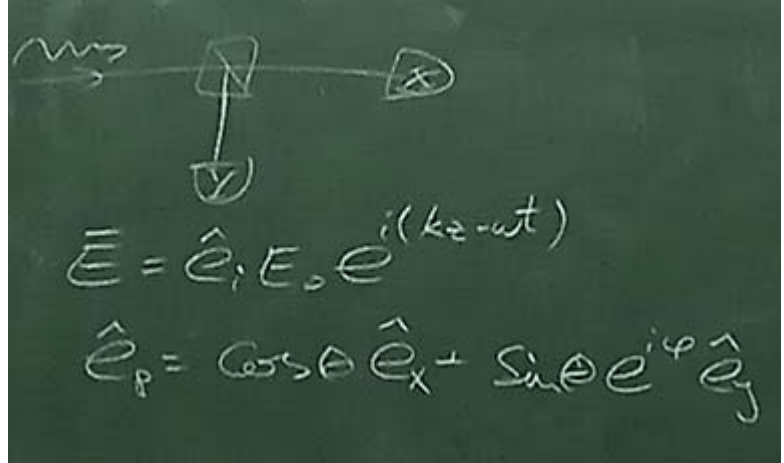 X
Y
Ē = ê_i E_0 e^{i(kz-ωt)}
ê_p = Cosθ ê_x + Sinθ e^{iφ} ê_y